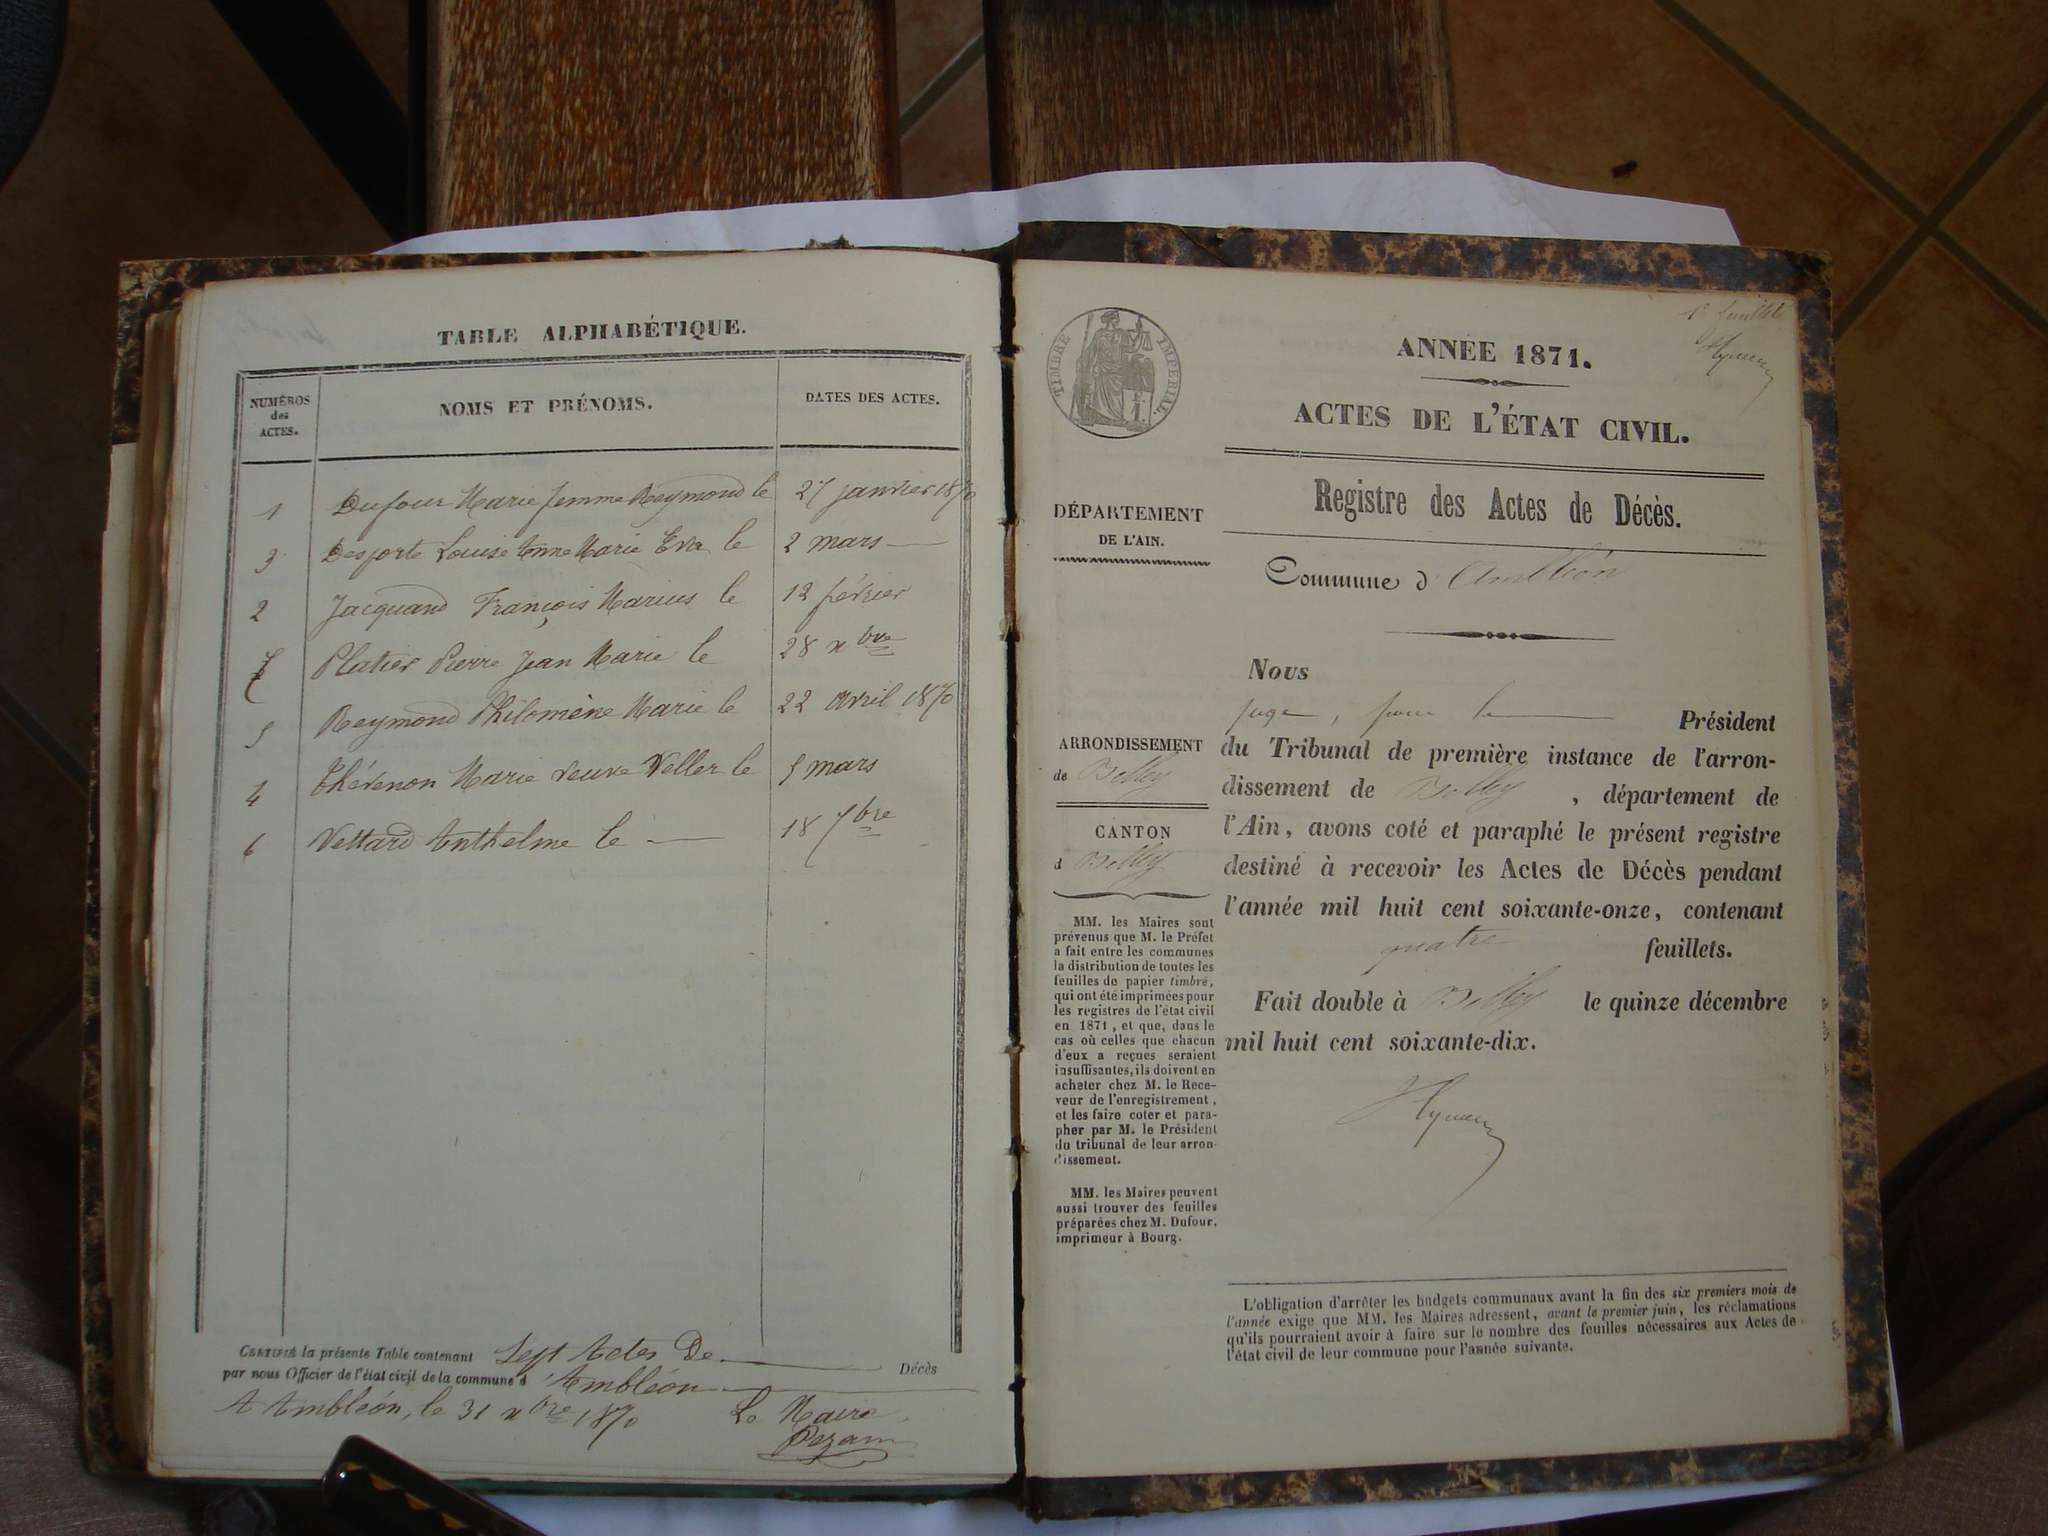 TABLE ALPHABÉTIQUE.
NUMÉROS
des
ACTES.
NOMS ET PRÉNOMS.
DATES DES ACTES.
1 Dufour Marie femme Reymond le 27 janvier 1870
3 Desporte Louise Anne Marie Eva le 2 mars
2 Jacquand François Marius le 12 février
7 Platier Pierre Jean Marie le 28 xbre
5 Reymond Philomène Marie le 22 avril 1870
4 Thévenon Marie veuve Veller le 5 mars
6 Vettard Anthelme le 18 7bre
CERTIFIÉ la présente Table contenant Sept Actes De Décès
par nous Officier de l'état civil de la commune d'Ambléon
A Ambléon, le 31 xbre 1870 Le Maire
1er feuillet
TIMBRE IMPÉRIAL.
ANNÉE 1871.
ACTES DE L'ÉTAT CIVIL.
Registre des Actes de Décès.
Commune d'Ambléon
DÉPARTEMENT
DE L'AIN.
ARRONDISSEMENT
de Belley
CANTON
d Belley
MM. les Maires sont
prévenus que M. le Préfet
a fait entre les communes
la distribution de toutes les
feuilles de papier timbré,
qui ont été imprimées pour
les registres de l'état civil
en 1871, et que, dans le
cas où celles que chacun
d'eux a reçues seraient
insuffisantes, ils doivent en
acheter chez M. le Rece-
veur de l'enregistrement,
et les faire coter et para-
pher par M. le Président
du tribunal de leur arron-
dissement.
MM. les Maires peuvent
aussi trouver des feuilles
préparées chez M. Dufour,
imprimeur à Bourg.
Nous
juge, pour le Président
du Tribunal de première instance de l'arron-
dissement de Belley, département de
l'Ain, avons coté et paraphé le présent registre
destiné à recevoir les Actes de Décès pendant
l'année mil huit cent soixante-onze, contenant
quatre feuillets.
Fait double à Belley le quinze décembre
mil huit cent soixante-dix.
L'obligation d'arrêter les budgets communaux avant la fin des six premiers mois de
l'année exige que MM. les Maires adressent, avant le premier juin, les réclamations
qu'ils pourraient avoir à faire sur le nombre des feuilles nécessaires aux Actes de
l'état civil de leur commune pour l'année suivante.